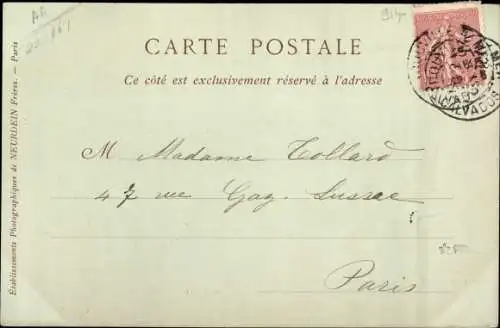 CARTE POSTALE
Ce côté est exclusivement réservé à l'adresse
M Madame Collard
47 rue Gay. Lussac
Paris
Établissements Photographiques de NEURDEIN Frères. - Paris
CALVADOS